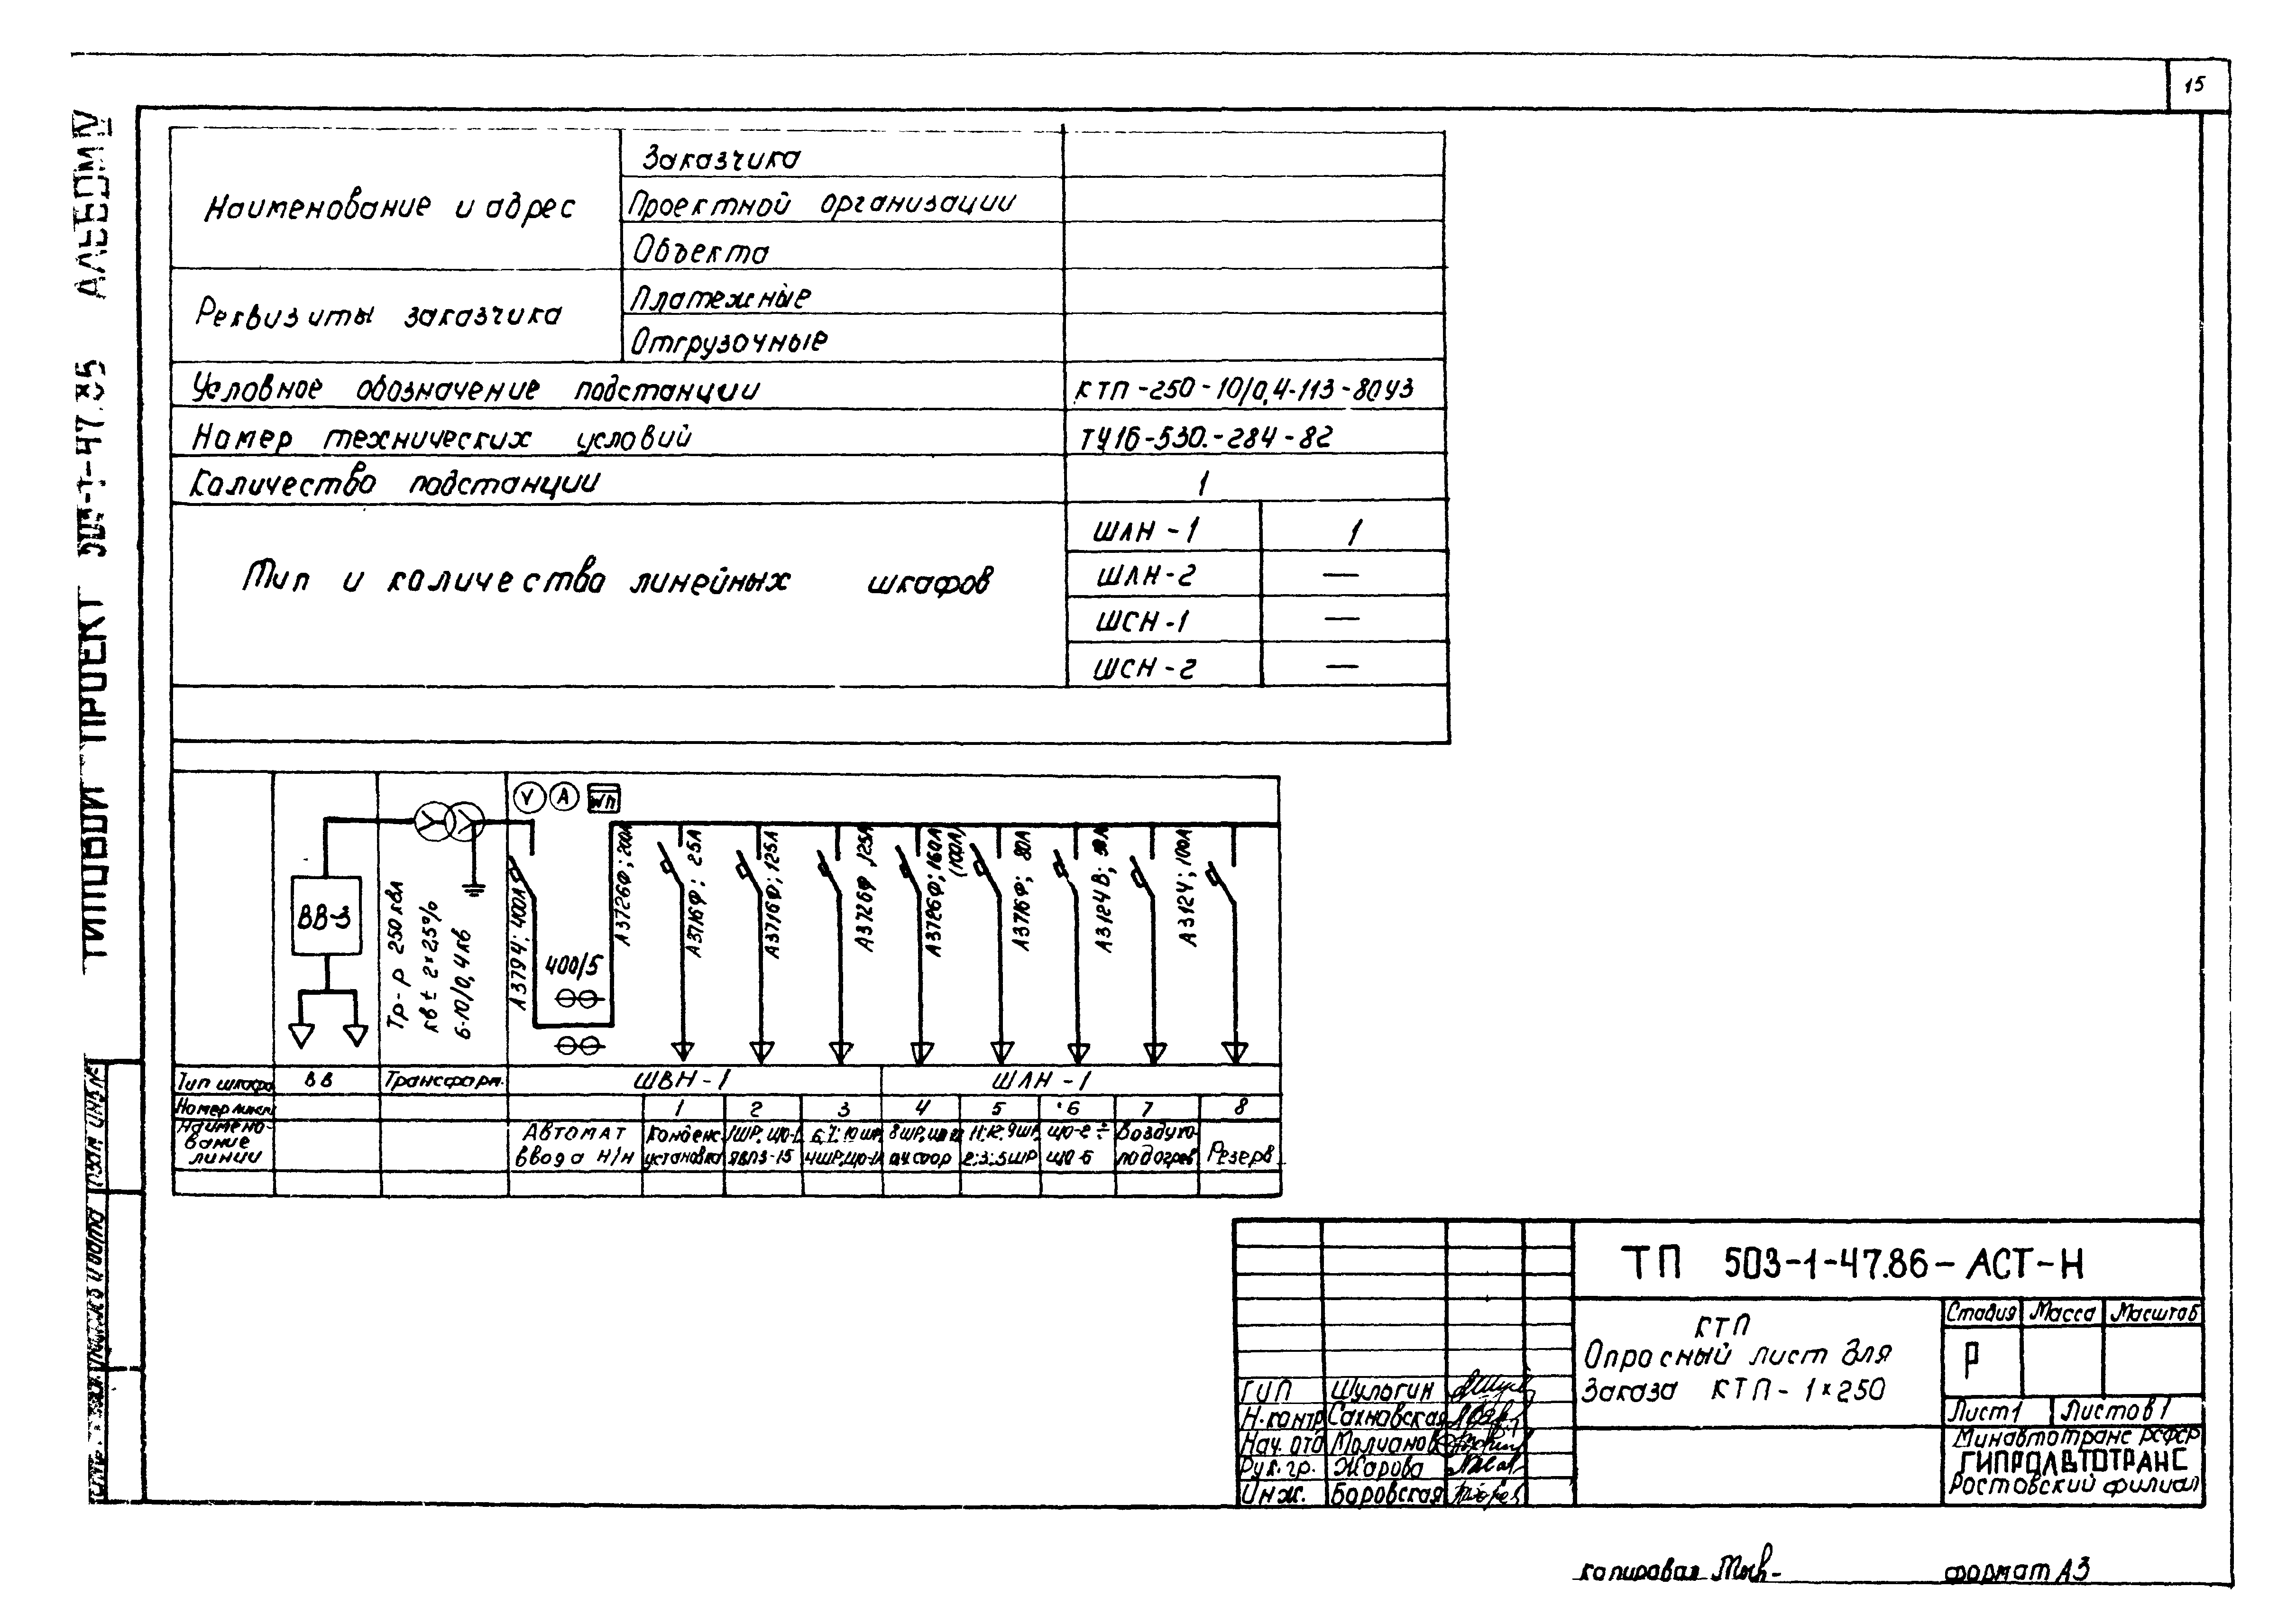 15
АЛЬБОМ IV
ТИПОВОЙ ПРОЕКТ
Наименование и адрес
Заказчика
Проектной организации
Объекта
Реквизиты заказчика
Платежные
Отгрузочные
Условное обозначение подстанции
КТП-250-10/0,4-113-80У3
Номер технических условий
ТУ16-530.-284-82
Количество подстанции
1
Тип и количество линейных шкафов
ШЛН-1
1
ШЛН-2
—
ШСН-1
—
ШСН-2
—
V
A
ВВ-3
Тр-р 250 кВА
кВ ± 2×2,5%
6-10/0,4 кВ
А3794; 400А
400/5
А3726Ф; 200А
А3716Ф; 25А
А3716Ф; 125А
А3726Ф, 125А
А3726Ф; 160А
(100А)
А3716Ф; 80А
А3124В;
А3124; 100А
Тип шкафа
ВВ
Трансформ.
ШВН-1
ШЛН-1
Номер линии
1 2 3 4 5 6 7 8
Наимено-
вание
линии
Автомат
ввода н/н
Конденс
установка
ЯВПЗ-15
2;3;5ШР
ЩО-2÷
ЩО-6
Воздухо-
подогрев
Резерв
ТП 503-1-47.86-АСТ-Н
КТП
Опросный лист для
Заказа КТП-1×250
Стадия Масса Масштаб
Р
Лист 1 Листов 1
Минавтотранс РСФСР
ГИПРОАВТОТРАНС
Ростовский филиал
ГИП Шульгин
Н.контр Сахновская
Нач. отд Молчанов
Рук. гр. Жарова
Инж. Боровская
копировал
формат А3